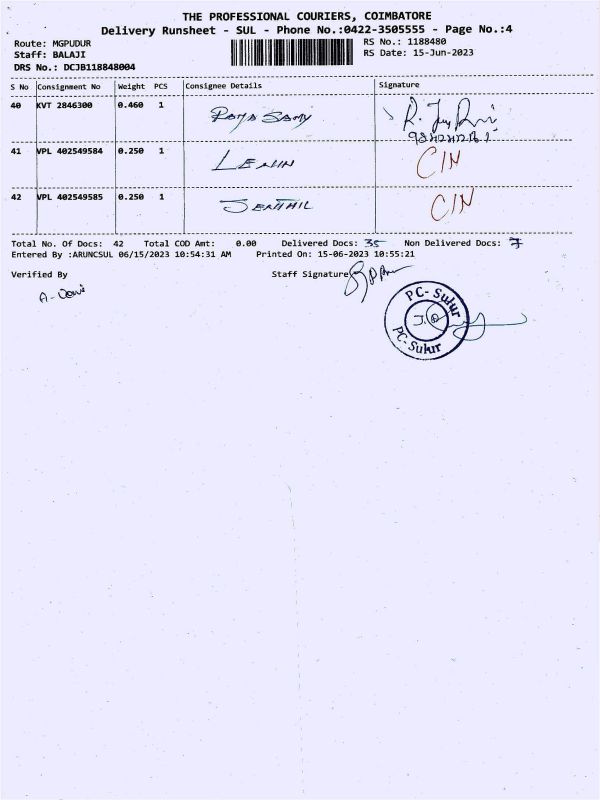 THE PROFESSIONAL COURIERS, COIMBATORE
Delivery Runsheet - SUL - Phone No.:0422-3505555 - Page No.:4
Route: MGPUDUR
Staff: BALAJI
DRS No.: DCJB118848004
RS No.: 1188480
RS Date: 15-Jun-2023
S No Consignment No Weight PCS Consignee Details Signature
40 KVT 2846300 0.460 1
41 VPL 402549584 0.250 1 LENIN CIN
42 VPL 402549585 0.250 1 SENTHIL CIN
Total No. Of Docs: 42 Total COD Amt: 0.00 Delivered Docs: 35 Non Delivered Docs: 7
Entered By :ARUNCSUL 06/15/2023 10:54:31 AM Printed On: 15-06-2023 10:55:21
Verified By Staff Signature
PC- Sulur
PC- Sulur